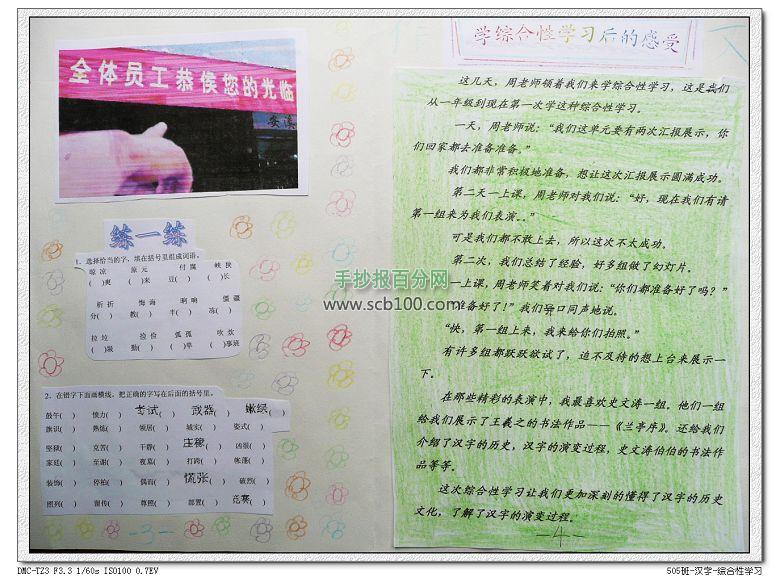 全体员工恭侯您的光临
安溪
练一练
1、选择恰当的字，填在括号里组成词语。
晾 凉 原 元 付 腐 峡 狭
( )爽 ( )来 豆( ) ( )长
析 折 悔 海 响 晌 僵 疆
分( ) 教( ) 半( ) 冻( )
拉 垃 捡 俭 孤 弧 吹 炊
( )圾 勤( ) ( )单 ( )事班
2、在错字下面画横线，把正确的字写在后面的括号里。
鼓午( ) 惧力( ) 考试( ) 武器( ) 嫩绿( )
旗识( ) 熟炼( ) 领居( ) 城实( ) 姿式( )
坚狱( ) 克苦( ) 干静( ) 庄稼( ) 凶狠( )
家庭( ) 至谢( ) 夜幕( ) 打跨( ) 帐蓬( )
装饰( ) 停柏( ) 偶而( ) 慌张( ) 破烈( )
照列( ) 留传( ) 尊照( ) 部置( ) 危害( )
-3-
学综合性学习后的感受
这几天，周老师领着我们来学综合性学习，这是我们
从一年级到现在第一次学这种综合性学习。
一天，周老师说：“我们这单元要有两次汇报展示，你
们回家都去准备准备。”
我们都非常积极地准备，想让这次汇报展示圆满成功。
第二天一上课，周老师对我们说：“好，现在我们有请
第一组来为我们表演。。”
可是我们都不敢上去，所以这次不太成功。
第二次，我们总结了经验，好多组做了幻灯片。
一上课，周老师笑着对我们说：“你们都准备好了吗？”
“准备好了！”我们异口同声地说。
“快，第一组上来，我来给你们拍照。”
有许多组都跃跃欲试了，迫不及待的想上台来展示一
下。
在那些精彩的表演中，我最喜欢史文涛一组。他们一组
给我们展示了王羲之的书法作品——《兰亭序》。还给我们
介绍了汉字的历史，汉字的演变过程，史文涛伯伯的书法作
品等等。
这次综合性学习让我们更加深刻的懂得了汉字的历史
文化，了解了汉字的演变过程。
—4—
手抄报百分网
www.scb100.com
DMC-TZ3 F3.3 1/60s ISO100 0.7EV
505班-汉字-综合性学习